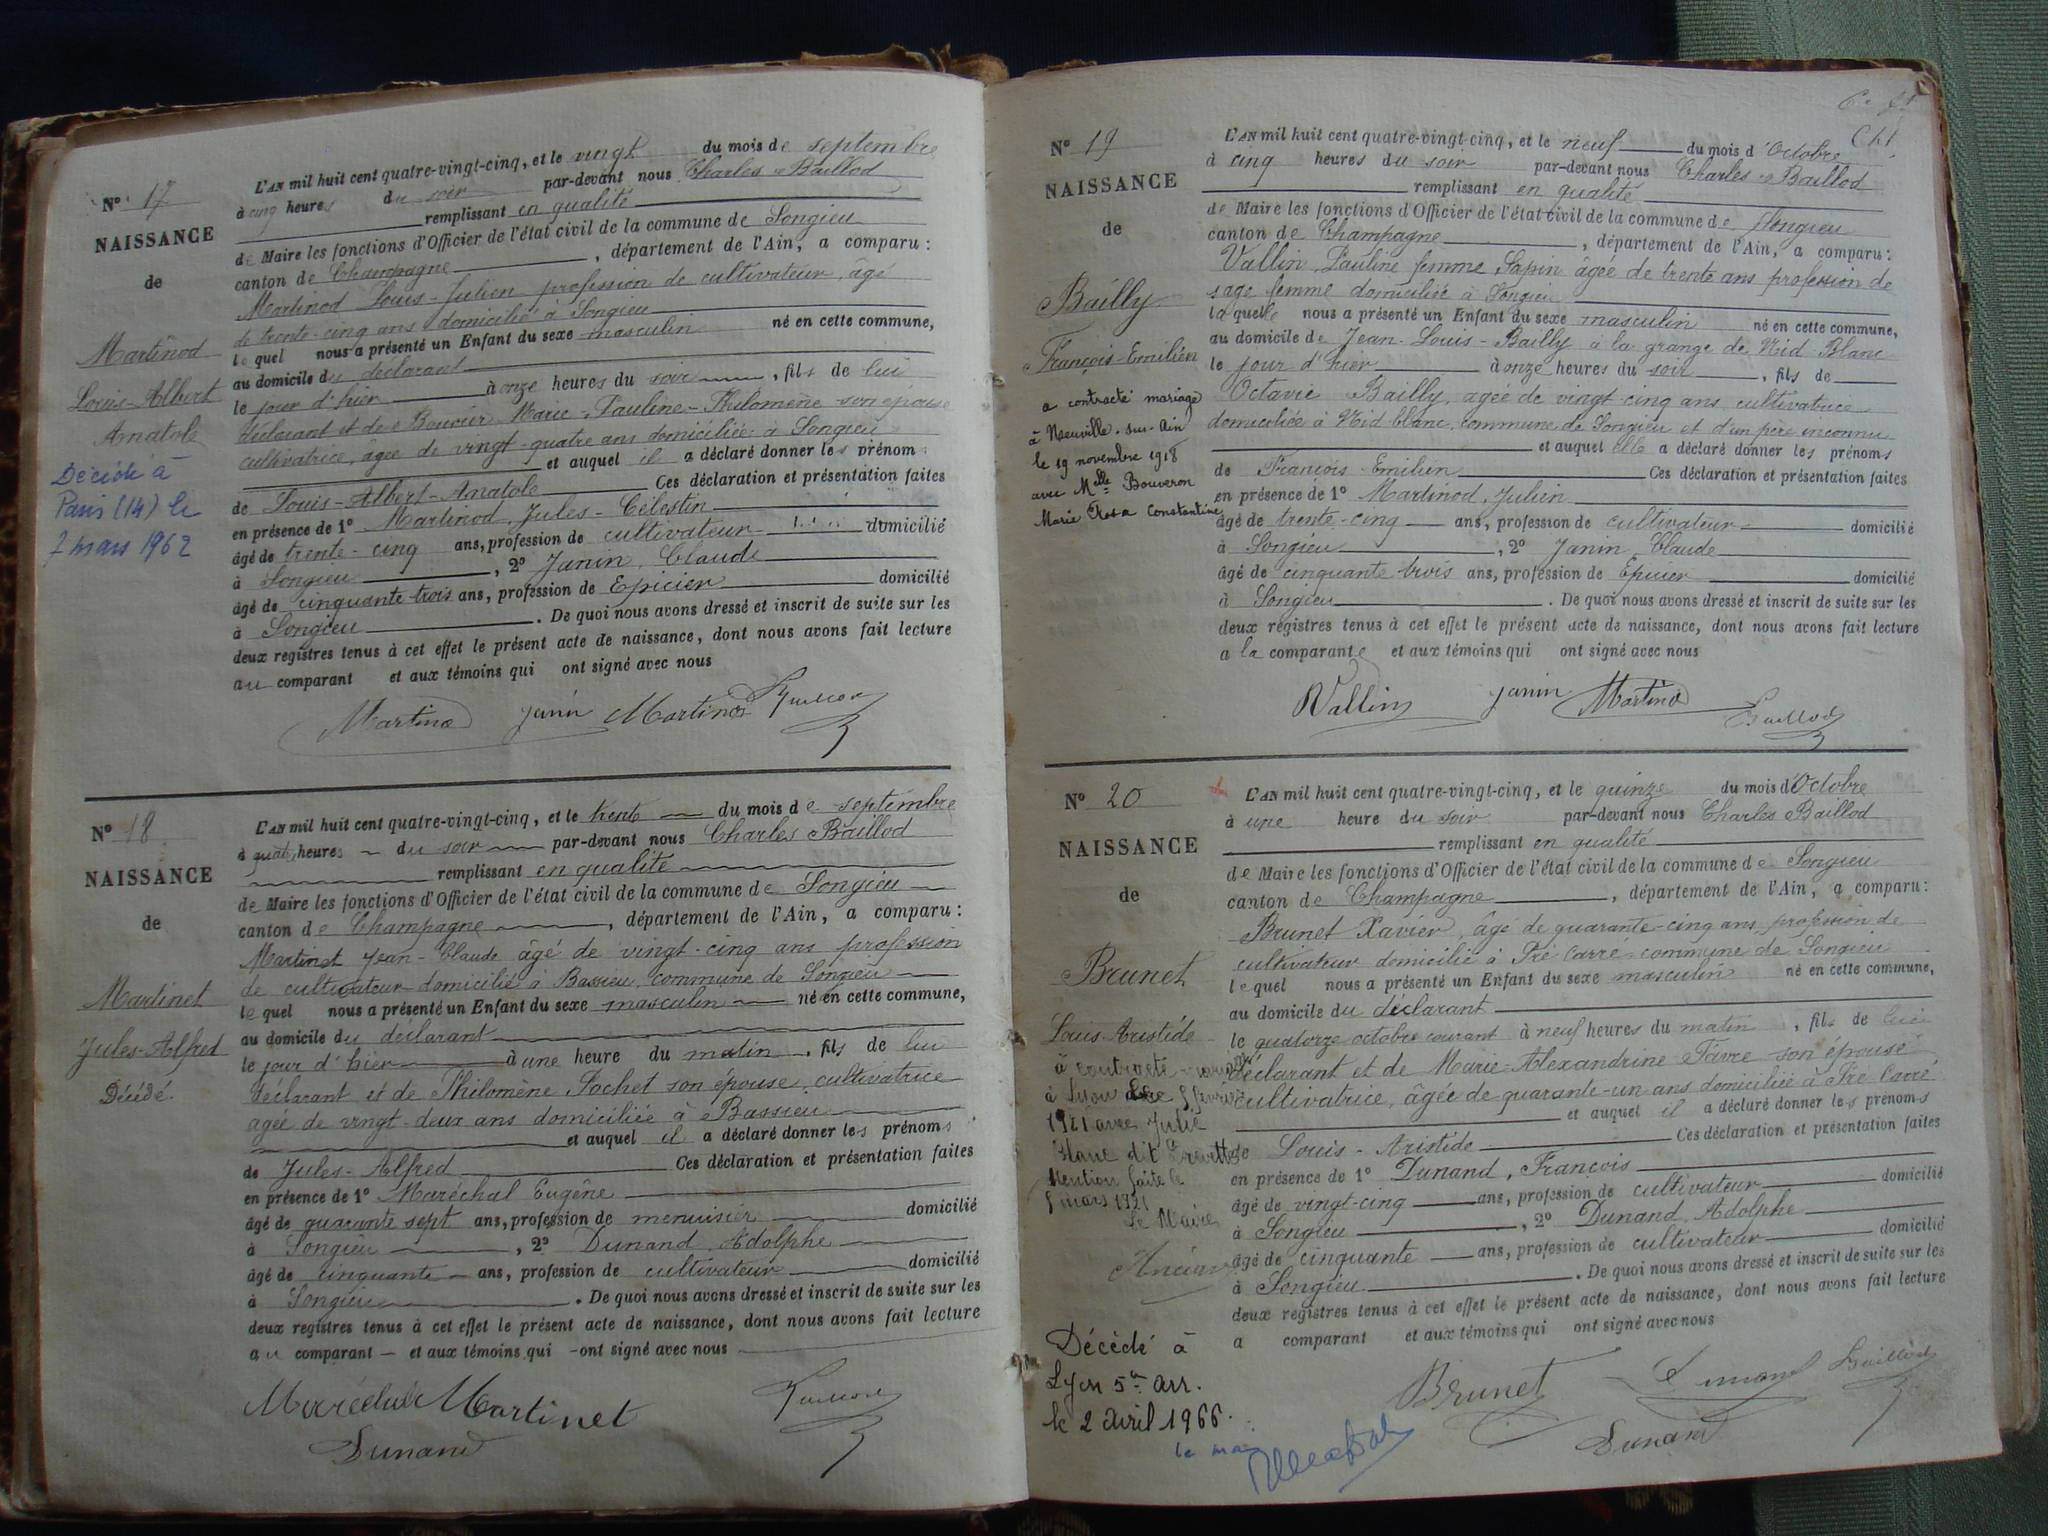 N° 17
NAISSANCE
de
Martinod
Louis-Albert
Anatole
Décédé à
Paris (14) le
7 mars 1962
L'AN mil huit cent quatre-vingt-cinq, et le vingt du mois de septembre
à cinq heures du soir par-devant nous Charles Baillod
remplissant en qualité
de Maire les fonctions d'Officier de l'état civil de la commune de Songieu
canton de Champagne, département de l'Ain, a comparu :
Martinod Louis-Julien profession de cultivateur, âgé
de trente-cinq ans domicilié à Songieu
lequel nous a présenté un Enfant du sexe masculin né en cette commune,
au domicile du déclarant
le jour d'hier à onze heures du soir, fils de lui
déclarant et de Bouvier Marie-Pauline-Philomène son épouse
cultivatrice, âgée de vingt-quatre ans domiciliée à Songieu
et auquel il a déclaré donner les prénoms
de Louis-Albert-Anatole Ces déclaration et présentation faites
en présence de 1° Martinod, Jules-Célestin
âgé de trente-cinq ans, profession de cultivateur domicilié
à Songieu, 2° Janin, Claude
âgé de cinquante trois ans, profession de Epicier domicilié
à Songieu. De quoi nous avons dressé et inscrit de suite sur les
deux registres tenus à cet effet le présent acte de naissance, dont nous avons fait lecture
au comparant et aux témoins qui ont signé avec nous
Martinod Janin Martinod Baillod
N° 18
NAISSANCE
de
Martinet
Jules-Alfred
Décédé.
L'AN mil huit cent quatre-vingt-cinq, et le trente du mois de septembre
à quatre heures du soir par-devant nous Charles Baillod
remplissant en qualité
de Maire les fonctions d'Officier de l'état civil de la commune de Songieu
canton de Champagne, département de l'Ain, a comparu :
Martinet Jean-Claude âgé de vingt-cinq ans profession
de cultivateur domicilié à Bassieu commune de Songieu
lequel nous a présenté un Enfant du sexe masculin né en cette commune,
au domicile du déclarant
le jour d'hier à une heure du matin, fils de lui
déclarant et de Philomène Pochet son épouse, cultivatrice
agée de vingt-deux ans domiciliée à Bassieu
et auquel il a déclaré donner les prénoms
de Jules-Alfred Ces déclaration et présentation faites
en présence de 1° Maréchal Eugène
âgé de quarante sept ans, profession de menuisier domicilié
à Songieu, 2° Dunand, Adolphe
âgé de cinquante ans, profession de cultivateur domicilié
à Songieu. De quoi nous avons dressé et inscrit de suite sur les
deux registres tenus à cet effet le présent acte de naissance, dont nous avons fait lecture
au comparant et aux témoins qui ont signé avec nous
Maréchal Martinet Baillod
Dunand
N° 19
NAISSANCE
de
Bailly
François-Emilien
a contracté mariage
à Neuville-sur-Ain
le 19 novembre 1918
avec Melle Bouveron
Marie Rosa Constantine
L'AN mil huit cent quatre-vingt-cinq, et le neuf du mois d'Octobre
à cinq heures du soir par-devant nous Charles Baillod
remplissant en qualité
de Maire les fonctions d'Officier de l'état civil de la commune de Songieu
canton de Champagne, département de l'Ain, a comparu :
Vallin, Pauline femme Sapin âgée de trente ans profession de
sage femme domiciliée à Songieu
laquelle nous a présenté un Enfant du sexe masculin né en cette commune,
au domicile de Jean-Louis-Bailly à la grange de Nid Blanc
le jour d'hier à onze heures du soir, fils de
Octavie Bailly, agée de vingt-cinq ans, cultivatrice
domiciliée à Nid blanc, commune de Songieu et d'un père inconnu
et auquel elle a déclaré donner les prénoms
de François-Emilien Ces déclaration et présentation faites
en présence de 1° Martinod, Julien
âgé de trente-cinq ans, profession de cultivateur domicilié
à Songieu, 2° Janin, Claude
âgé de cinquante trois ans, profession de Epicier domicilié
à Songieu. De quoi nous avons dressé et inscrit de suite sur les
deux registres tenus à cet effet le présent acte de naissance, dont nous avons fait lecture
a la comparante et aux témoins qui ont signé avec nous
Vallin Janin Martinod
Baillod
N° 20
NAISSANCE
de
Brunet
Louis Aristide
à contracté
à Lyon le 5 février
1921 avec Julie
Mention faite le
5 mars 1921
Le Maire,
Décédé à
Lyon 5e arr.
le 2 Avril 1966.
L'AN mil huit cent quatre-vingt-cinq, et le quinze du mois d'Octobre
à une heure du soir par-devant nous Charles Baillod
remplissant en qualité
de Maire les fonctions d'Officier de l'état civil de la commune de Songieu
canton de Champagne, département de l'Ain, a comparu :
Brunet Xavier, âgé de quarante-cinq ans, profession de
cultivateur domicilié à Pré Carré commune de Songieu
lequel nous a présenté un Enfant du sexe masculin né en cette commune,
au domicile du déclarant
le quatorze octobre courant à neuf heures du matin, fils de lui
déclarant et de Marie-Alexandrine Favre son épouse
cultivatrice, âgée de quarante-un ans domiciliée à Pré Carré
et auquel il a déclaré donner les prénoms
de Louis-Aristide Ces déclaration et présentation faites
en présence de 1° Dunand, François
âgé de vingt-cinq ans, profession de cultivateur domicilié
à Songieu, 2° Dunand, Adolphe
âgé de cinquante ans, profession de cultivateur domicilié
à Songieu. De quoi nous avons dressé et inscrit de suite sur les
deux registres tenus à cet effet le présent acte de naissance, dont nous avons fait lecture
a comparant et aux témoins qui ont signé avec nous
Brunet Dunand Baillod
Dunand